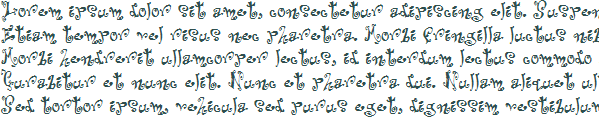 Lorem ipsum dolor sit amet, consectetur adipiscing elit. Suspen
Etiam tempor vel risus nec pharetra. Morbi fringilla luctus nib
Morbi hendrerit ullamcorper lectus, id interdum lectus commodo
Curabitur et nunc elit. Nunc et pharetra dui. Nullam aliquet ul
Sed tortor ipsum, vehicula sed purus eget, dignissim vestibulum